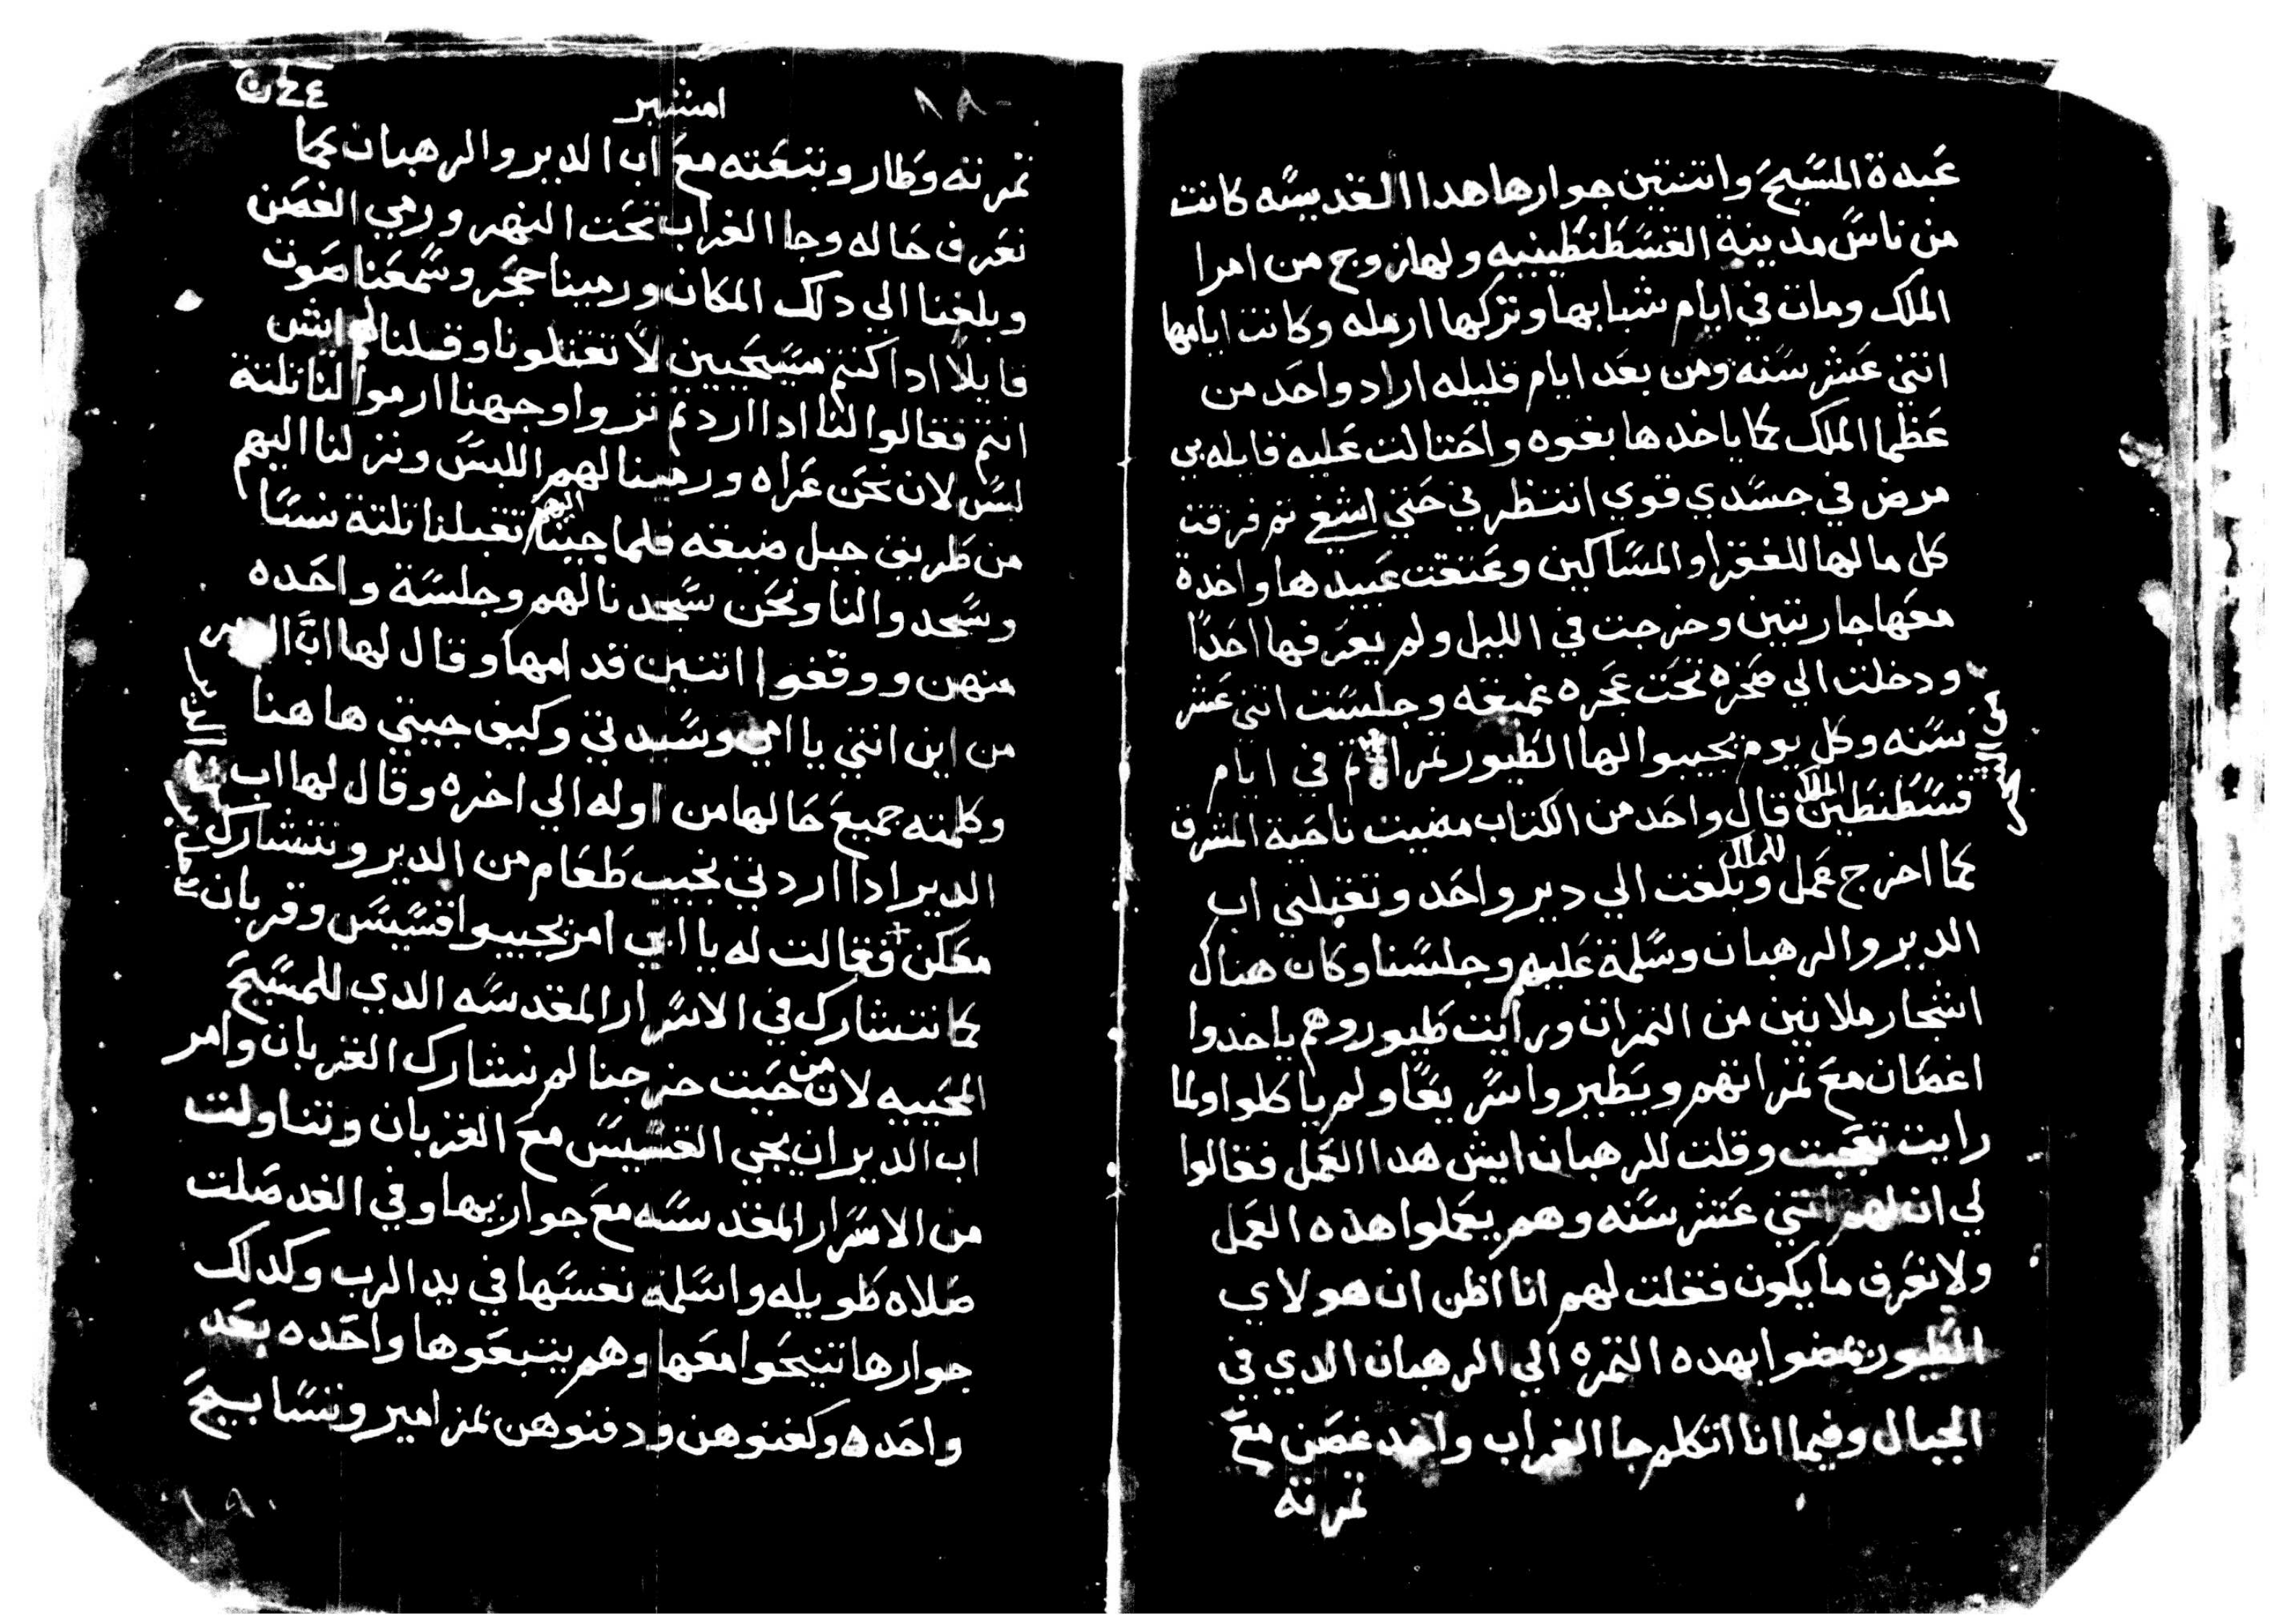 عبدة المسيح واتنتين جوارها هدا القديسه كانت
من ناس مدينة القسطنطينيه ولها زوج من امرا
الملك ومات في ايام شبابها وتركها ارمله وكانت ايامها
اتني عشر سنه ومن بعد ايام قليله اراد واحد من
عظما الملك كما ياخدها بغوه واحتالت عليه قايله بي
مرض في جسدي قوي انتظرني حتي اشفي تم فرقت
كل مالها للفقرا والمساكين وعتقت عبيدها واخدة
معها جارتين وخرجت في الليل ولم يعرفها احدا
ودخلت الي صخره تحت عجره عميقه وجلست اتني عشر
سنه وكل يوم يجيبوا لها الطيور تمرا تم في ايام
قسطنطين الملك قال واحد من الكتاب مضيت ناحية المشرق
كما اخرج عمل للملك وبلغت الي دير واحد وتقبلني اب
الدير والرهبان وسلمة عليهم وجلسنا وكان هناك
اشجار ملانين من التمران ورايت طيور وهم ياخدوا
اغصان مع تمراتهم ويطيروا سريعا ولم ياكلوا ولما
رايت تعجبت وقلت للرهبان ايش هدا العمل فقالوا
لي ان لهم اتني عشر سنه وهم يعملوا هذه العمل
ولا نعرف ما يكون فقلت لهم انا اظن ان هولاي
الطيور تمضوا بهده التمره الي الرهبان الدي في
الجبال وفيما انا اتكلم جا الغراب واخد غصن مع
تمرته
امشير
تمرته وطار وتبعته مع اب الدير والرهبان كما
نعرف حاله وجا الغراب تحت النهر ورمي الغصن
وبلغنا الي دلك المكان ورمينا حجر وسمعنا صوت
قايلا ادا كنتم مسيحيين لا تقتلونا وقلنا لهم ايش
انتم فقالوا لنا ادا اردتم تروا وجهنا ارموا لنا تلتة
لبس لان نحن عراه ورمينا لهم اللبس ونزلنا اليهم
من طريق جبل ضيقه فلما جينا اليهم تقبلنا تلتة نسا
وسجدوا لنا ونحن سجدنا لهم وجلسة واحده
منهن ووقفوا اتنتين قدامها وقال لها اب الدير
من اين انتي يا امي وسيدتي وكيف جيتي هاهنا
وكلمته جميع حالها من اوله الي اخره وقال لها اب
الدير ادا اردتي نجيب طعام من الدير ونتشارك
معكن فقالت له يا ابي امر يجيبوا قسيس وقربان
كما نتشارك في الاسرار المقدسه الدي للمسيح
المحييه لان من حيت خرجنا لم نشارك القربان وامر
اب الدير ان يجي القسيس مع القربان وتناولت
من الاسرار المقدسه مع جواريها وفي الغد صلت
صلاه طويله واسلمة نفسها في يد الرب وكدلك
جوارها تنيحوا معها وهم يتبعوها واحده بعد
واحده وكفنوهن ودفنوهن بمزامير وتسابيح